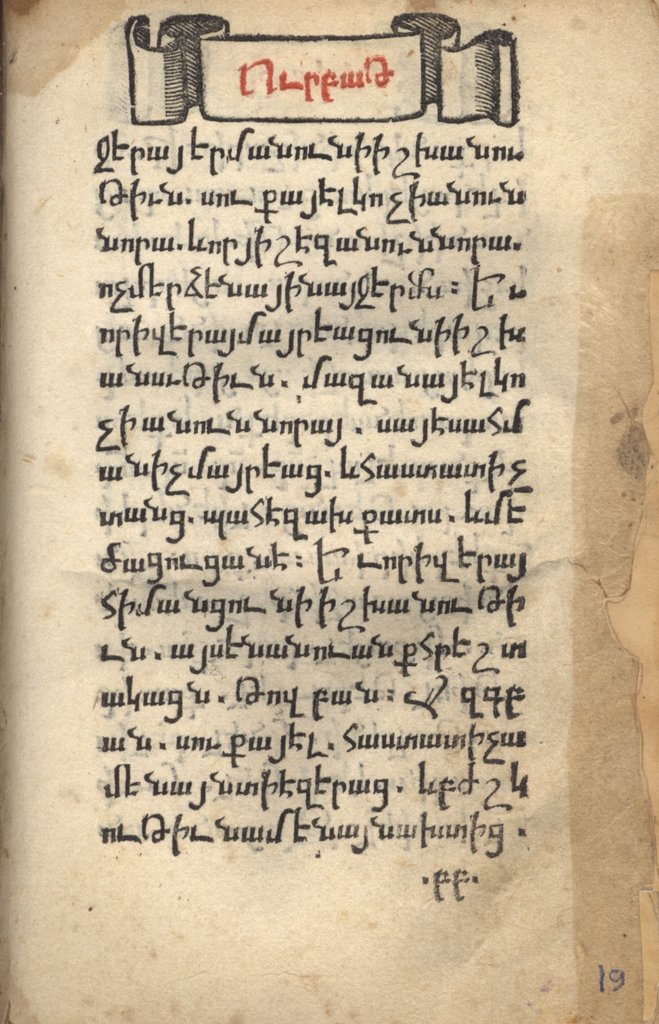 Ուրբաթ
Ջերայ երմանունիիշխանու
թիւն. սուքայէլկոչիանուն
նորա. ևորյիշէզանուննորա.
ոչմերձենայինայջերմն։ Եւ
որիվերայմայրէացունիիշխ
անաւթիւն. մազանայէլկո
չիանուննորայ. սայէսահմ
անիչմայրէաց. ևհաստատիչ
տանց. պահէզախքատս. ևմե
ծացուցանէ։ Եւորիվերայ
հիմանցունիիշխանութի
ւն. այսենանուանքհրեշտ
ակացն. թովբան։ զգբ
ան. սուքայէլ. հաստատիչա
մենայնտիեզերաց. ևբժշկ
ութիւնամենայնախտից.
.բբ.
19